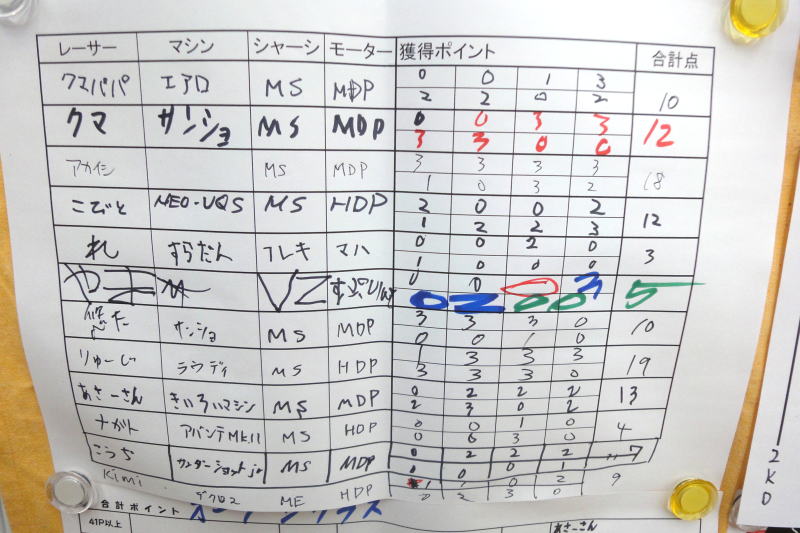 レーサー マシン シャーシ モーター 獲得ポイント 合計点
クマパパ エアロ MS MDP 0 0 1 3
2 2 0 2 10
クマ サンショ MS MDP 0 0 3 3
3 3 0 0 12
アカイシ MS MDP 3 3 3 3
1 0 3 2 18
こびと NEO-VQS MS HDP 2 0 0 2
1 2 2 3 12
れ すらだん フレキ マハ 0 0 2 0
1 0 0 0 3
VZ 0 0 0 3
0 2 0 0 5
サンショ MS MDP 3 3 3 0
0 0 1 0 10
りゅーじ ラウディ MS HDP 1 3 3 3
3 3 3 0 19
あさーさん きいろいマシン MS MDP 0 2 2 2
2 3 0 2 13
ナガト アバンテMk.II MS HDP 0 0 1 0
0 0 3 0 4
こうち サンダーショットjr MS MDP 0 2 2 2 7
0 0 0 1
Kimi デクロス ME HDP 0 2 3 0 9
合計ポイント
41P以上 あさーさん
2KO